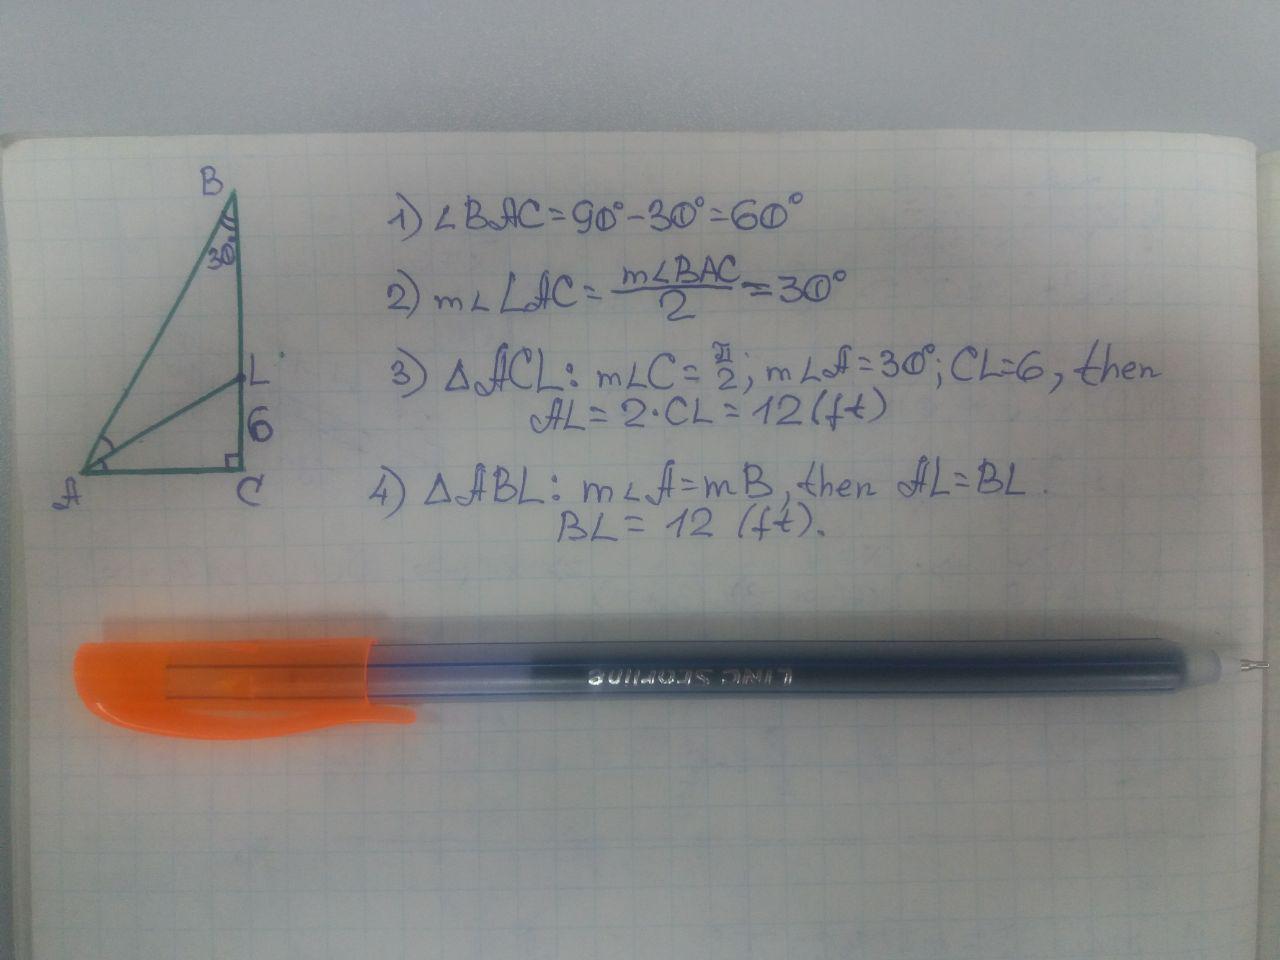 B
30°
L
6
A
C
1) ∠BAC = 90° - 30° = 60°
2) m∠LAC = m∠BAC / 2 = 30°
3) △ACL: m∠C = π/2; m∠A = 30°; CL = 6, then
AL = 2·CL = 12 (ft)
4) △ABL: m∠A = mB, then AL = BL.
BL = 12 (ft).
LINC